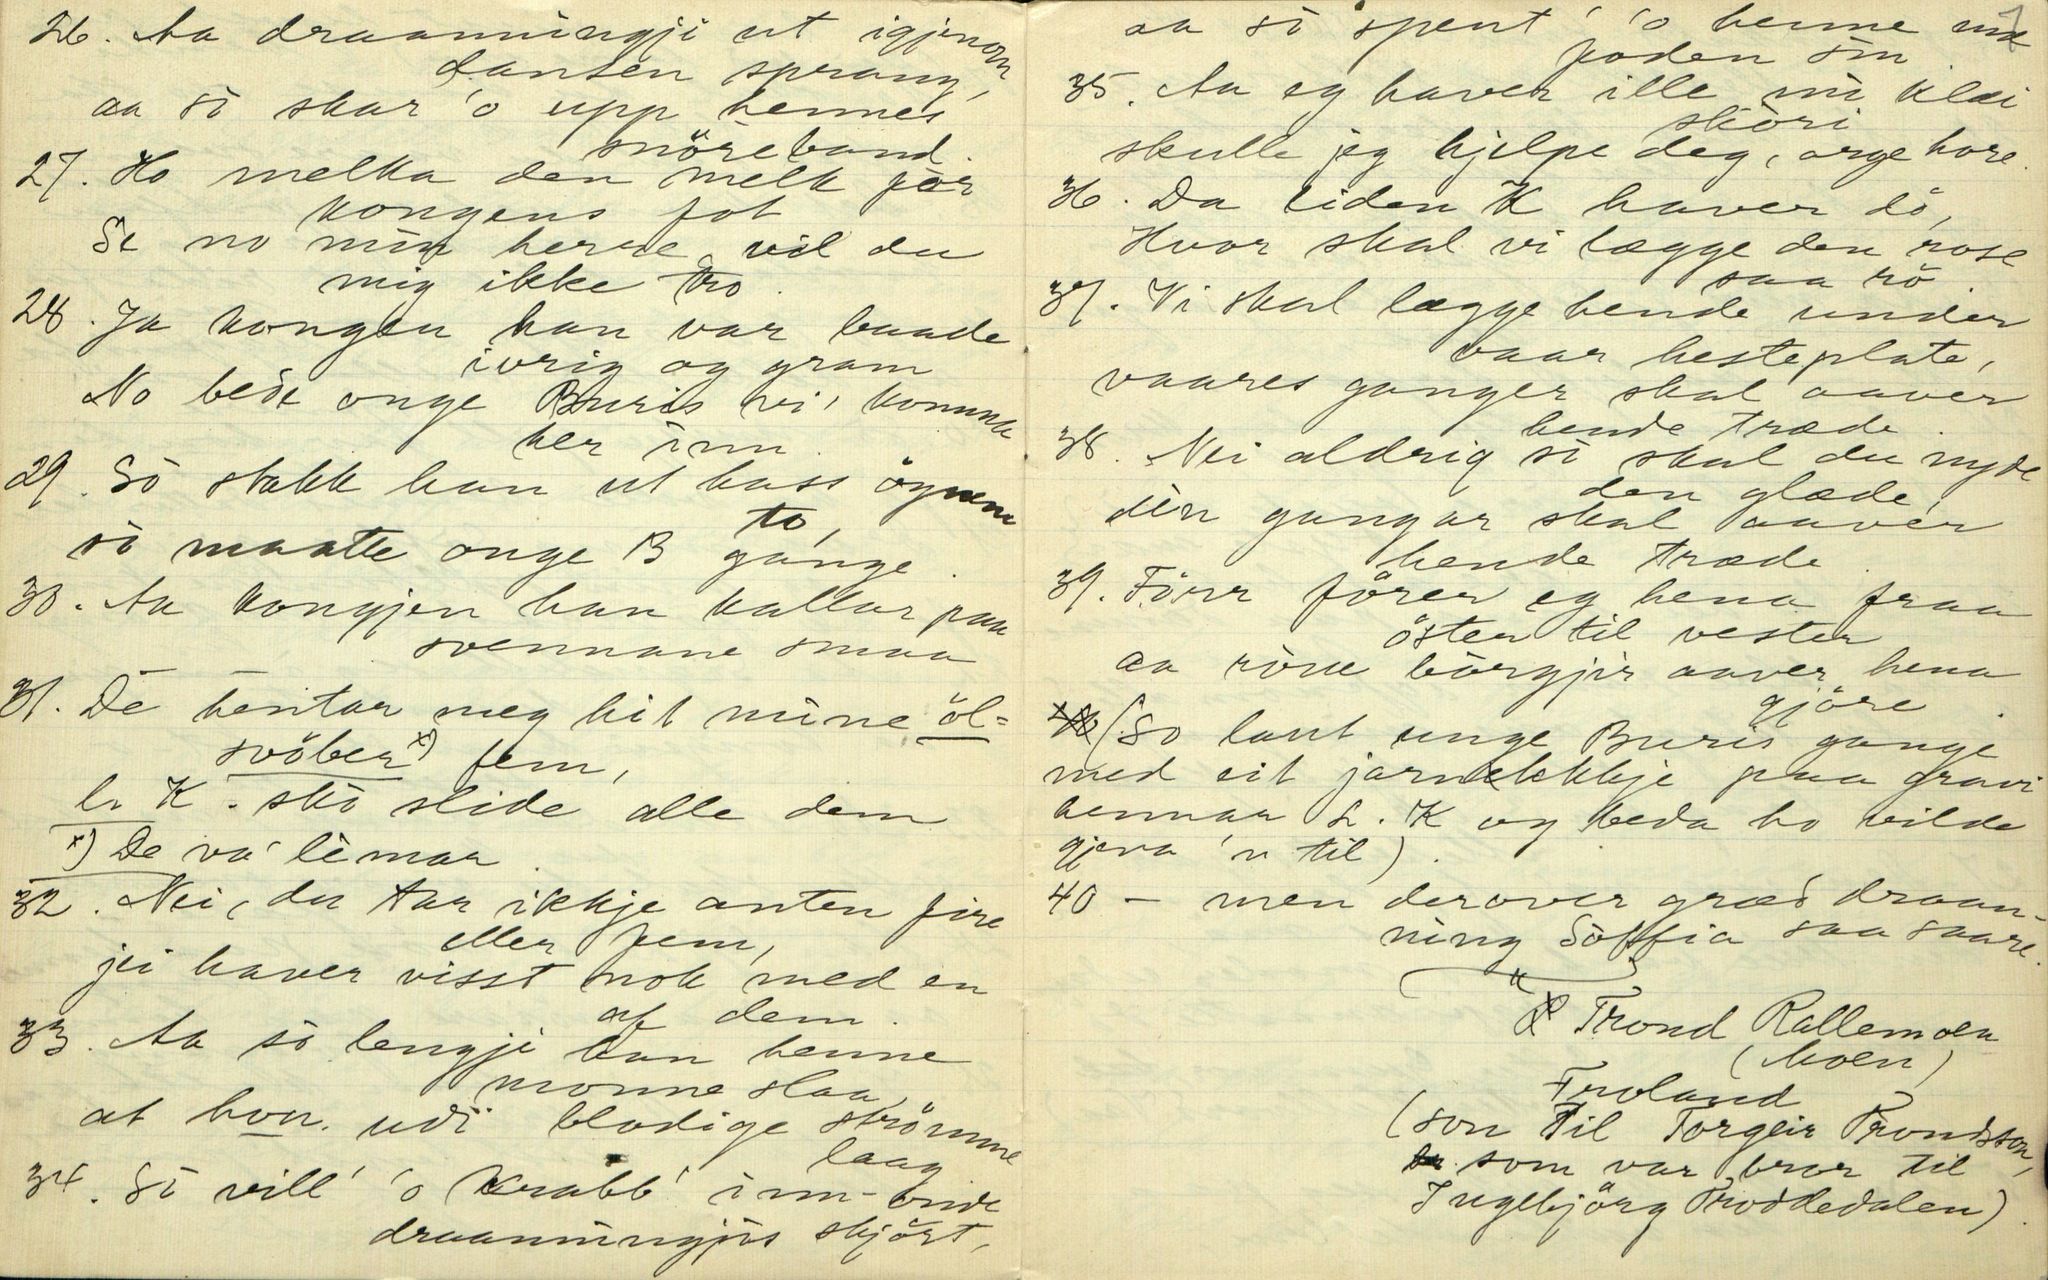 26. Aa draanningji ut igjenom
dansen sprang,
aa sò skar 'o upp hennes
snöreband.
27. Ho melka den melk för
kongens fot
Se no min herre, vil du
mig ikke tro.
28. Ja kongen han var baade
ivrig og gram
No bede onge Buris vi' komme
her inn.
29. Sò stakk han ut hass ögnene
to,
sò maatte onge B gange.
30. Aa kongjen han kallar paa
svennane smaa
31. De hentar meg hit mine öl-
svöber x) fem,
l. K. sko slide alle dem
x) De va' lèmar.
32. Nei, du tar ikkje anten fire
eller fem,
jei haver visst nok med en
af dem.
33. Aa sò lengji han henne
monne slaa,
at hon. udi blodige strömme
laag
34. Sò vill' 'o krabb' inn-onde
draanningjis skjört,
aa sò spent' 'o henne med
foden sin.
35. Aa eg haver ille mi klæi
skòri
skulle jeg hjelpe deg, arge hore.
36. Da liden K haver dö,
Hvor skal vi lægge den rose
saa rö.
37. Vi skal lægge hende under
vaar hesteplate,
vaares ganger skal aaver
hende træde.
38. Nei aldrig sò skal du nyde
den glæde,
din gangar skal aaver
hende træde.
39. Förr förer eg hena fraa
öster til vester
aa ròse bòrgjir aaver hena
gjöre.
(So laut unge Buris gange
med eit jarnlekkje paa gravi
hennar L. K og beda ho vilde
gjeva 'n til).
40 – men derover græd draan-
ning Söffia saa saare.
Trond Rallemoen
(Moen)
Froland
(son til Torgeir Trondsson,
som var bror til
Ingebjörg Troddedalen).